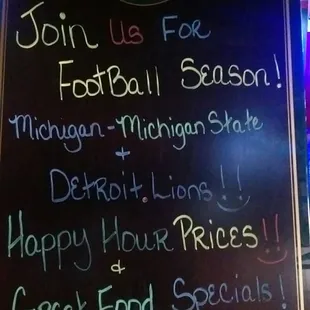 Join Us For
FootBall Season!
Michigan-Michigan State
+
Detroit.Lions!!
Happy Hour Prices!!
&
Great Food Specials!